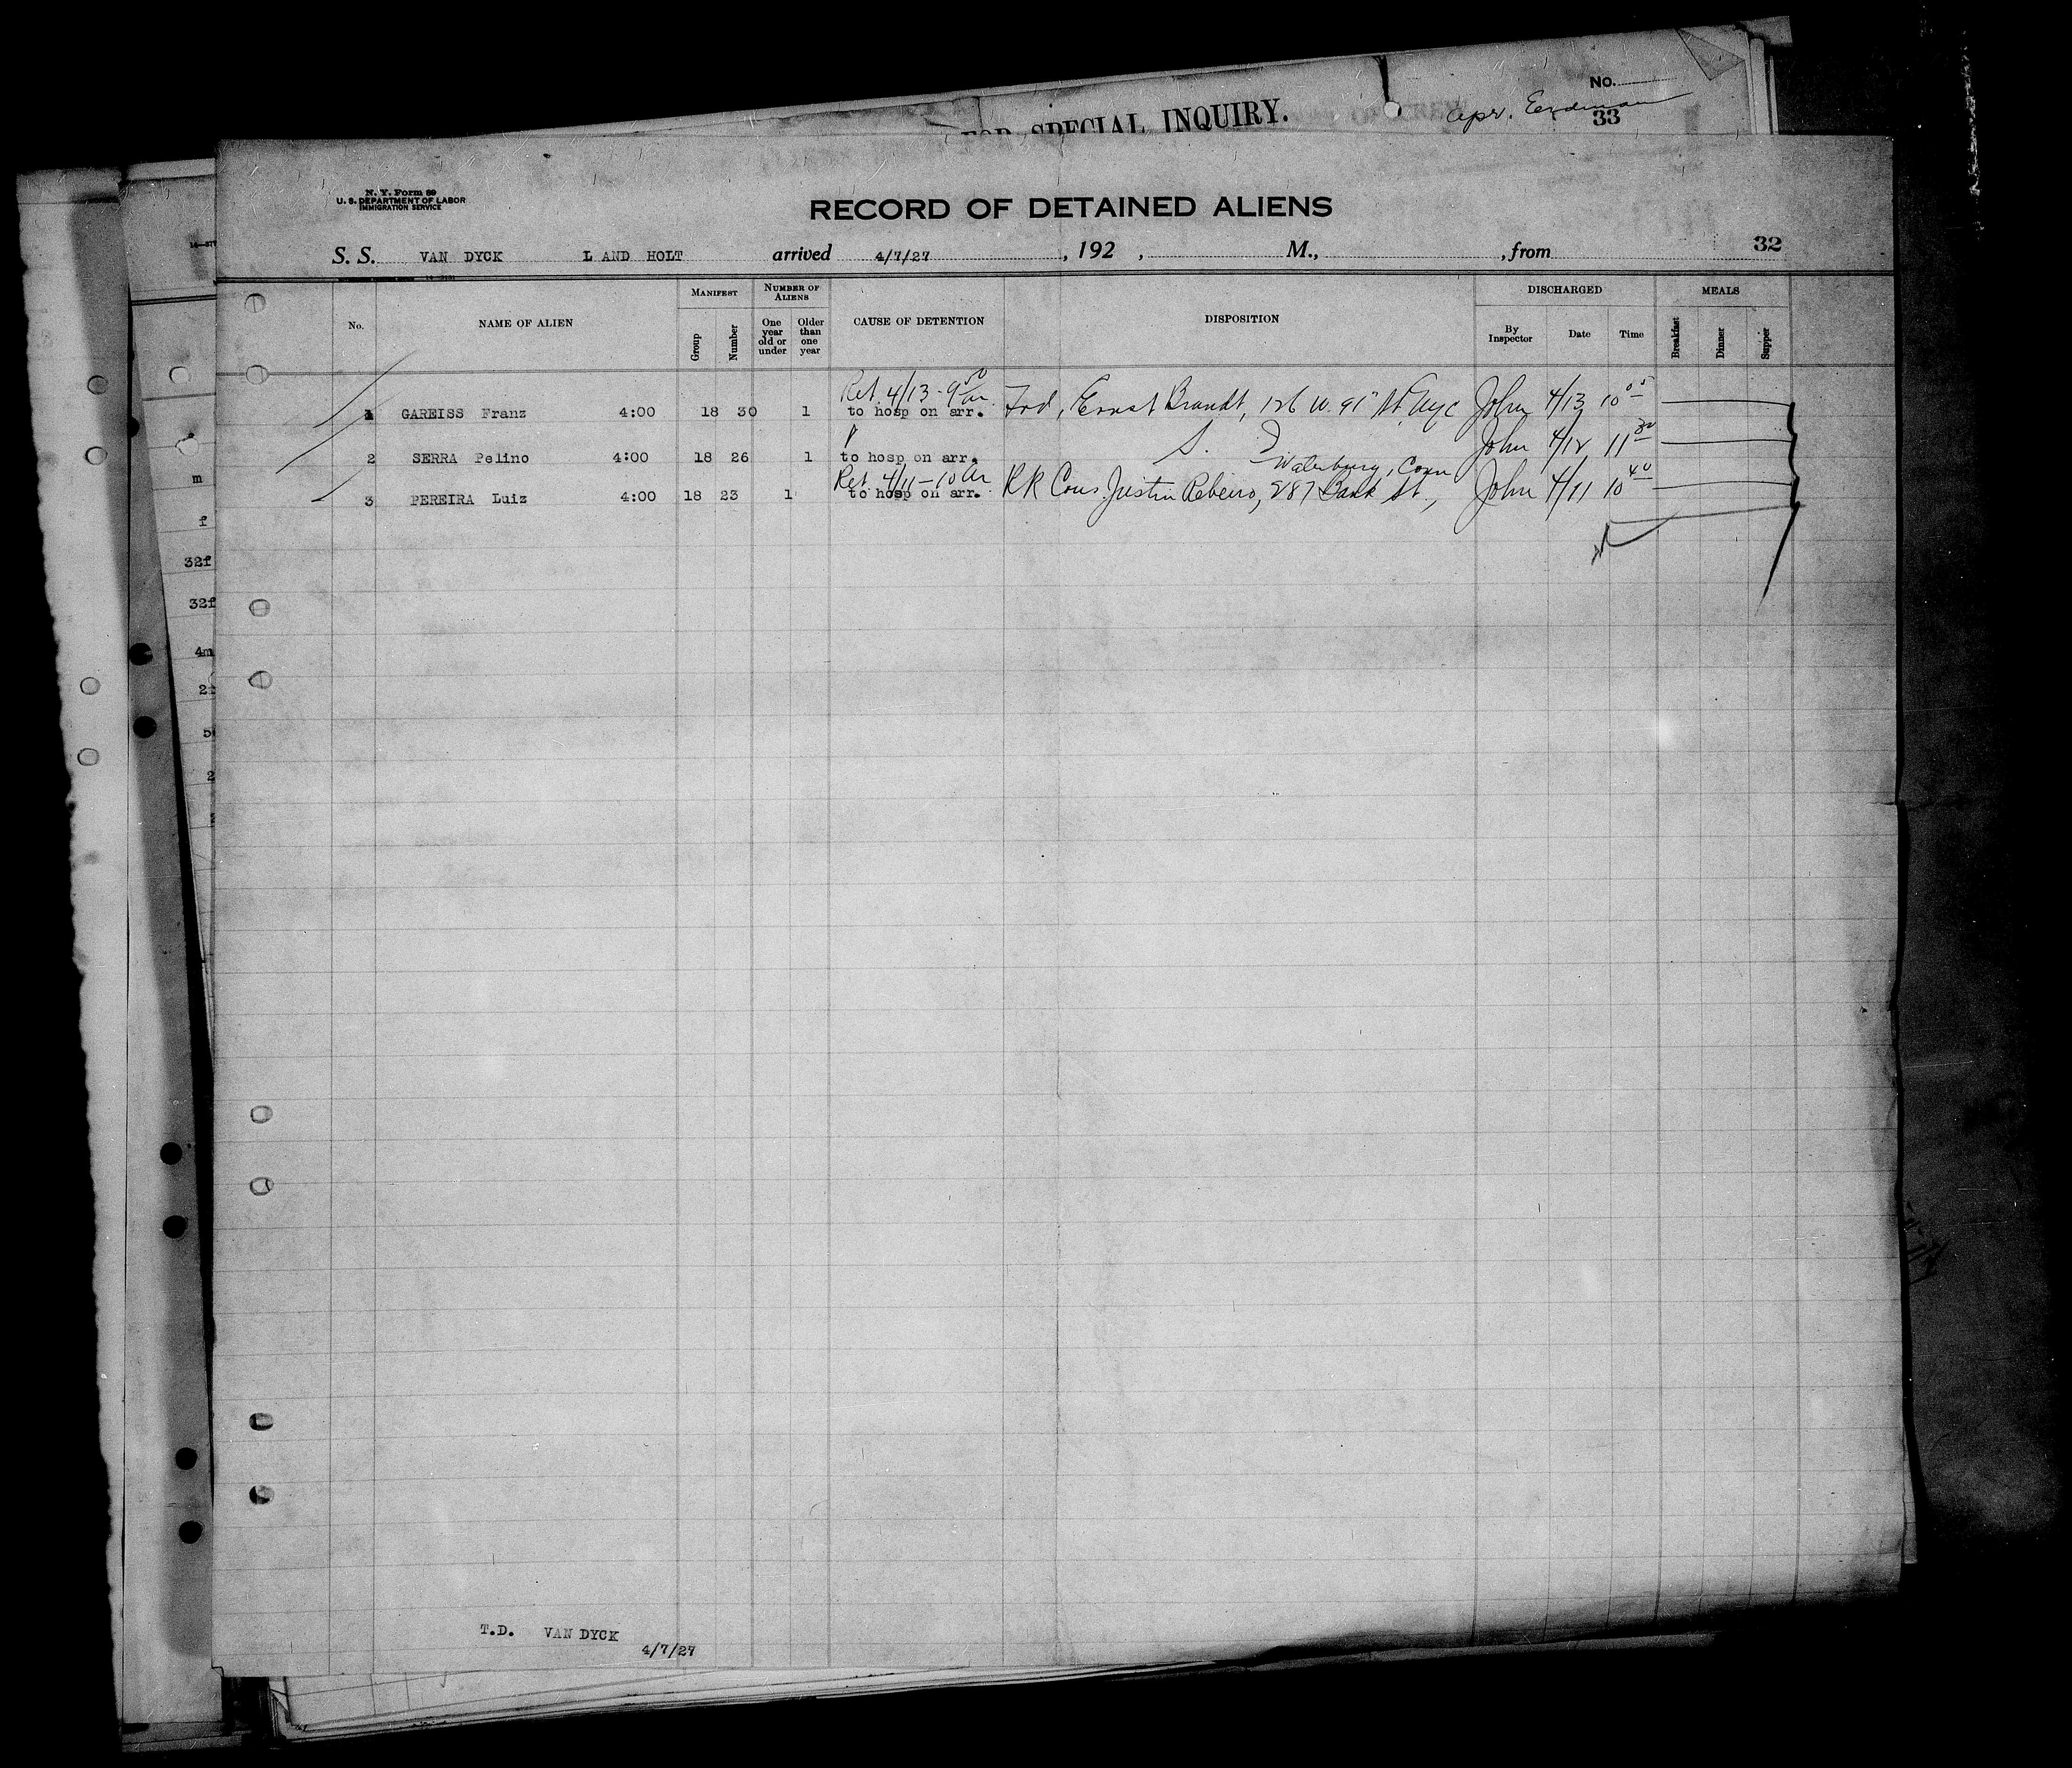 No.
SPECIAL INQUIRY.
33
N. Y. Form 89
U. S. DEPARTMENT OF LABOR
IMMIGRATION SERVICE
RECORD OF DETAINED ALIENS
S. S. VAN DYCK L AND HOLT arrived 4/7/27, 192 , M., , from 32
No. NAME OF ALIEN MANIFEST Group Number NUMBER OF ALIENS One year old or under Older than one year CAUSE OF DETENTION DISPOSITION DISCHARGED By Inspector Date Time MEALS Breakfast Dinner Supper
Ret. 4/13-9
1 GAREISS Franz 4:00 18 30 1 to hosp on arr. Frd, Ernst Brandt, 126 W. 91" St. NYC John 4/13 10 00
2 SERRA Pelino 4:00 18 26 1 to hosp on arr. S. John 4/12 11 30
Ret 4/11-10 Waterbury, Conn
3 PEREIRA Luiz 4:00 18 23 1 to hosp on arr. RR Cous. Justin Rebeiro, 287 Bank St., John 4/11 10 40
m
f
32f
32f
4m
T.D. VAN DYCK
4/7/27